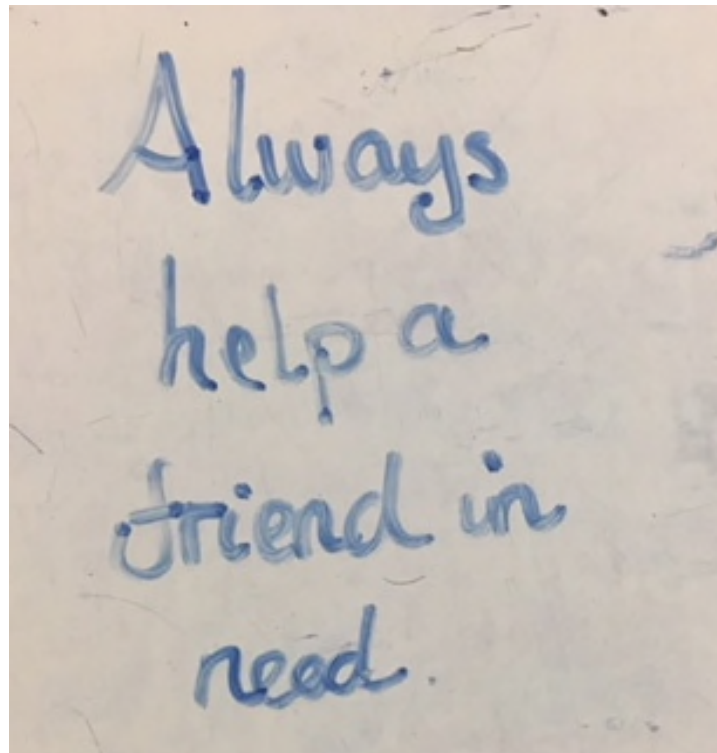 Always
help a
friend in
need.